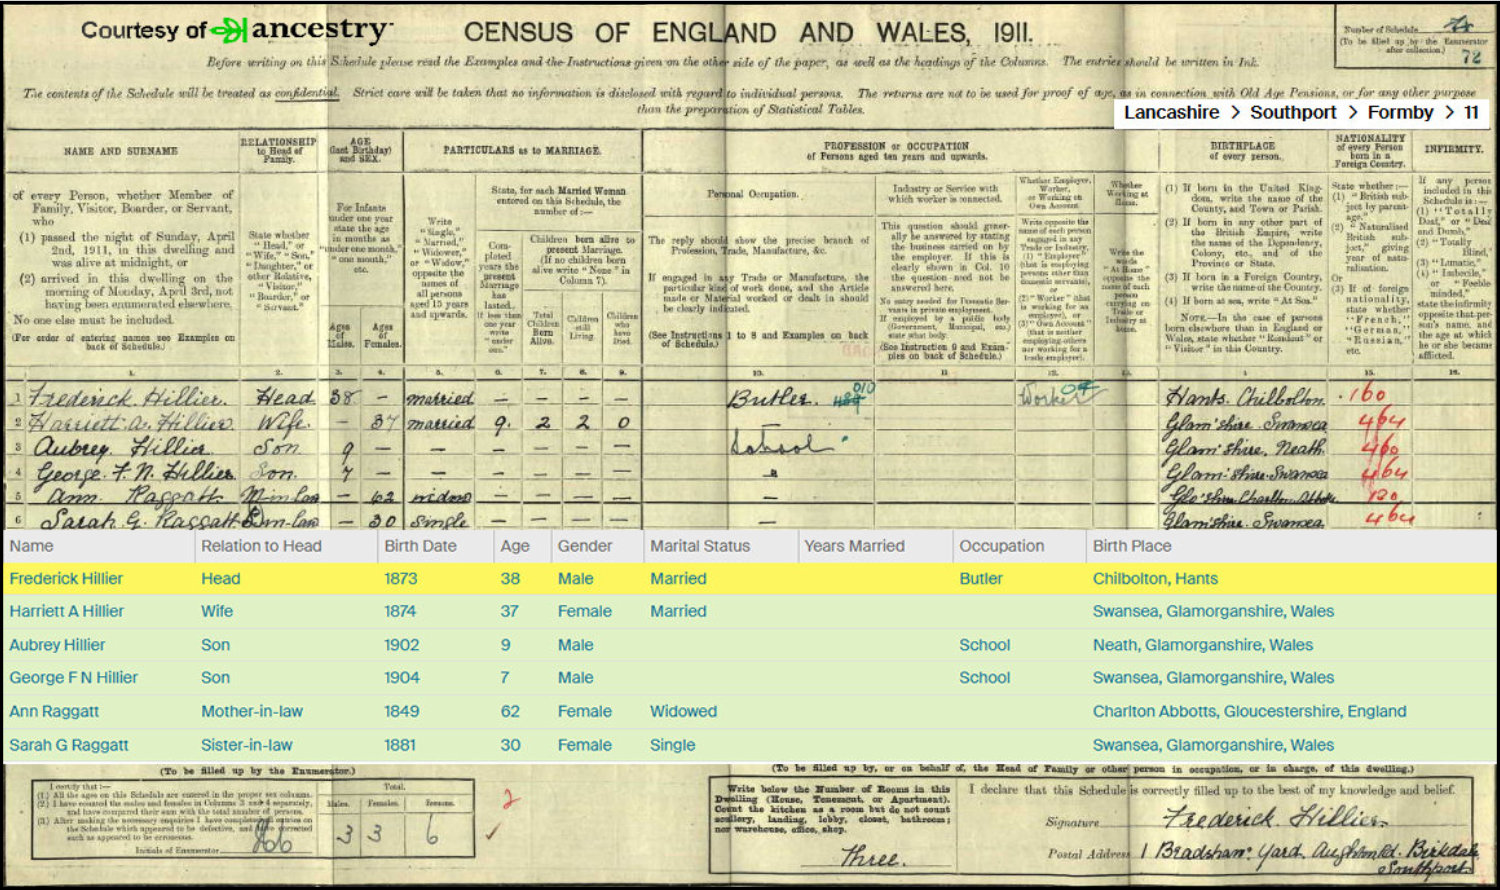 Courtesy of ancestry
CENSUS OF ENGLAND AND WALES, 1911.
Number of Schedule
(To be filled up by the Enumerator
after collection.)
72
Before writing on this Schedule please read the Examples and the Instructions given on the other side of the paper, as well as the headings of the Columns. The entries should be written in Ink.
The contents of the Schedule will be treated as confidential. Strict care will be taken that no information is disclosed with regard to individual persons. The returns are not to be used for proof of age, as in connection with Old Age Pensions, or for any other purpose
than the preparation of Statistical Tables.
Lancashire > Southport > Formby > 11
NAME AND SURNAME
RELATIONSHIP
to Head of
Family.
AGE
(last Birthday)
and SEX.
PARTICULARS as to MARRIAGE.
PROFESSION or OCCUPATION
of Persons aged ten years and upwards.
BIRTHPLACE
of every person.
NATIONALITY
of every Person
born in a
Foreign Country.
INFIRMITY.
of every Person, whether Member of
Family, Visitor, Boarder, or Servant,
who
(1) passed the night of Sunday, April
2nd, 1911, in this dwelling and
was alive at midnight, or
(2) arrived in this dwelling on the
morning of Monday, April 3rd, not
having been enumerated elsewhere.
No one else must be included.
(For order of entering names see Examples on
back of Schedule.)
State whether
"Head," or
"Wife," "Son,"
"Daughter," or
other Relative,
"Visitor,"
"Boarder," or
"Servant."
For Infants
under one year
state the age
in months as
"under one month,"
"one month,"
etc.
Ages
of
Males.
Ages
of
Females.
Write
"Single,"
"Married,"
"Widower,"
or "Widow,"
opposite the
names of
all persons
aged 15 years
and upwards.
State, for each Married Woman
entered on this Schedule, the
number of:—
Completed
years the
present
Marriage
has
lasted.
If less than
one year
write
"under
one."
Children born alive to
present Marriage.
(If no children born
alive write "None" in
Column 7).
Total
Children
Born
Alive.
Children
still
Living.
Children
who
have
Died.
Personal Occupation.
The reply should show the precise branch of
Profession, Trade, Manufacture, &c.
If engaged in any Trade or Manufacture, the
particular kind of work done, and the Article
made or Material worked or dealt in should
be clearly indicated.
(See Instructions 1 to 8 and Examples on back
of Schedule.)
Industry or Service with
which worker is connected.
This question should generally
be answered by stating
the business carried on by
the employer. If this is
clearly shown in Col. 10
the question need not be
answered here.
No entry needed for Domestic Servants
in private employment.
If employed by a public body
(Government, Municipal, etc.)
state what body.
(See Instruction 9 and Examples
on back of Schedule.)
Whether Employer,
Worker,
or Working on
Own Account
Whether
Working at
Home.
(1) If born in the United Kingdom,
write the name of the
County, and Town or Parish.
(2) If born in any other part of
the British Empire, write
the name of the Dependency,
Colony, etc., and of the
Province or State.
(3) If born in a Foreign Country,
write the name of the Country.
(4) If born at sea, write "At Sea."
NOTE.—In the case of persons
born elsewhere than in England or
Wales, state whether "Resident" or
"Visitor" in this Country.
1 Frederick Hillier. Head 38 – married Butler. 010 Worker Hants. Chilbolton. 160
2 Harriett. A. Hillier Wife. – 37 married 9. 2 2 0 Glam'shire. Swansea 464
3 Aubrey Hillier Son 9 – – – – – – School Glam'shire. Neath. 460
4 George. F. N. Hillier Son. 7 – – – – – – " Glam'shire. Swansea 464
5 Ann Raggatt M in law – 62 widow – – – – – Glo'shire. Charlton Abbotts 120
6 Sarah. G. Raggatt S in-law – 30 single – – – – – Glam'shire. Swansea. 464
Name Relation to Head Birth Date Age Gender Marital Status Years Married Occupation Birth Place
Frederick Hillier Head 1873 38 Male Married Butler Chilbolton, Hants
Harriett A Hillier Wife 1874 37 Female Married Swansea, Glamorganshire, Wales
Aubrey Hillier Son 1902 9 Male School Neath, Glamorganshire, Wales
George F N Hillier Son 1904 7 Male School Swansea, Glamorganshire, Wales
Ann Raggatt Mother-in-law 1849 62 Female Widowed Charlton Abbotts, Gloucestershire, England
Sarah G Raggatt Sister-in-law 1881 30 Female Single Swansea, Glamorganshire, Wales
(To be filled up by the Enumerator.)
I certify that:—
(1) All the ages on this Schedule are entered in the proper sex columns.
(2) I have counted the males and females in Columns 3 and 4 separately,
and have compared their sum with the total number of persons.
(3) After making the necessary enquiries I have completed all entries on
the Schedule which appeared to be defective, and have corrected
such as appeared to be erroneous.
Initials of Enumerator
Total.
Males. Females. Persons.
3 3 6
2
(To be filled up by, or on behalf of, the Head of Family or other person in occupation, or in charge, of this dwelling.)
Write below the Number of Rooms in this
Dwelling (House, Tenement, or Apartment).
Count the kitchen as a room but do not count
scullery, landing, lobby, closet, bathroom;
nor warehouse, office, shop.
Three.
I declare that this Schedule is correctly filled up to the best of my knowledge and belief.
Signature Frederick. Hillier.
Postal Address 1 Bradshaw. Yard. Aughton Rd. Birkdale
Southport.